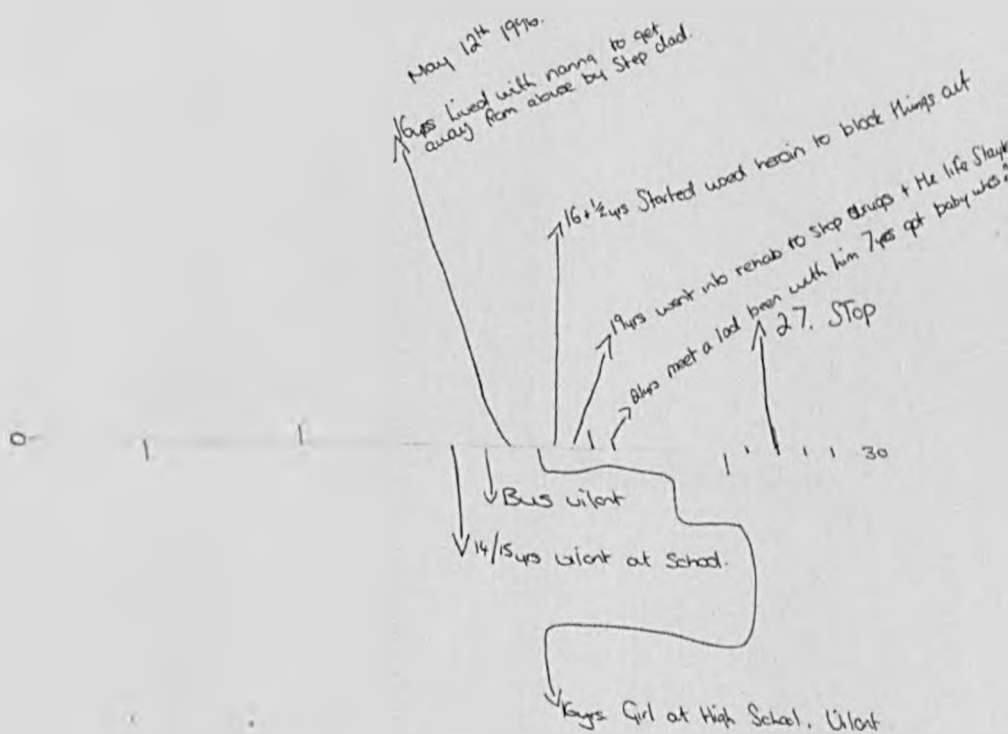 May 12th 1996.
16yrs Lived with nanna to get
away from abuse by Step dad.
16+½yrs Started used heroin to block things out
19yrs went into rehab to stop drugs + the life
21yrs meet a lad been with him 7yrs got baby whos
27. STOP
0
30
Bus vilont
14/15yrs vilont at School.
16yrs Girl at High School. Vilont